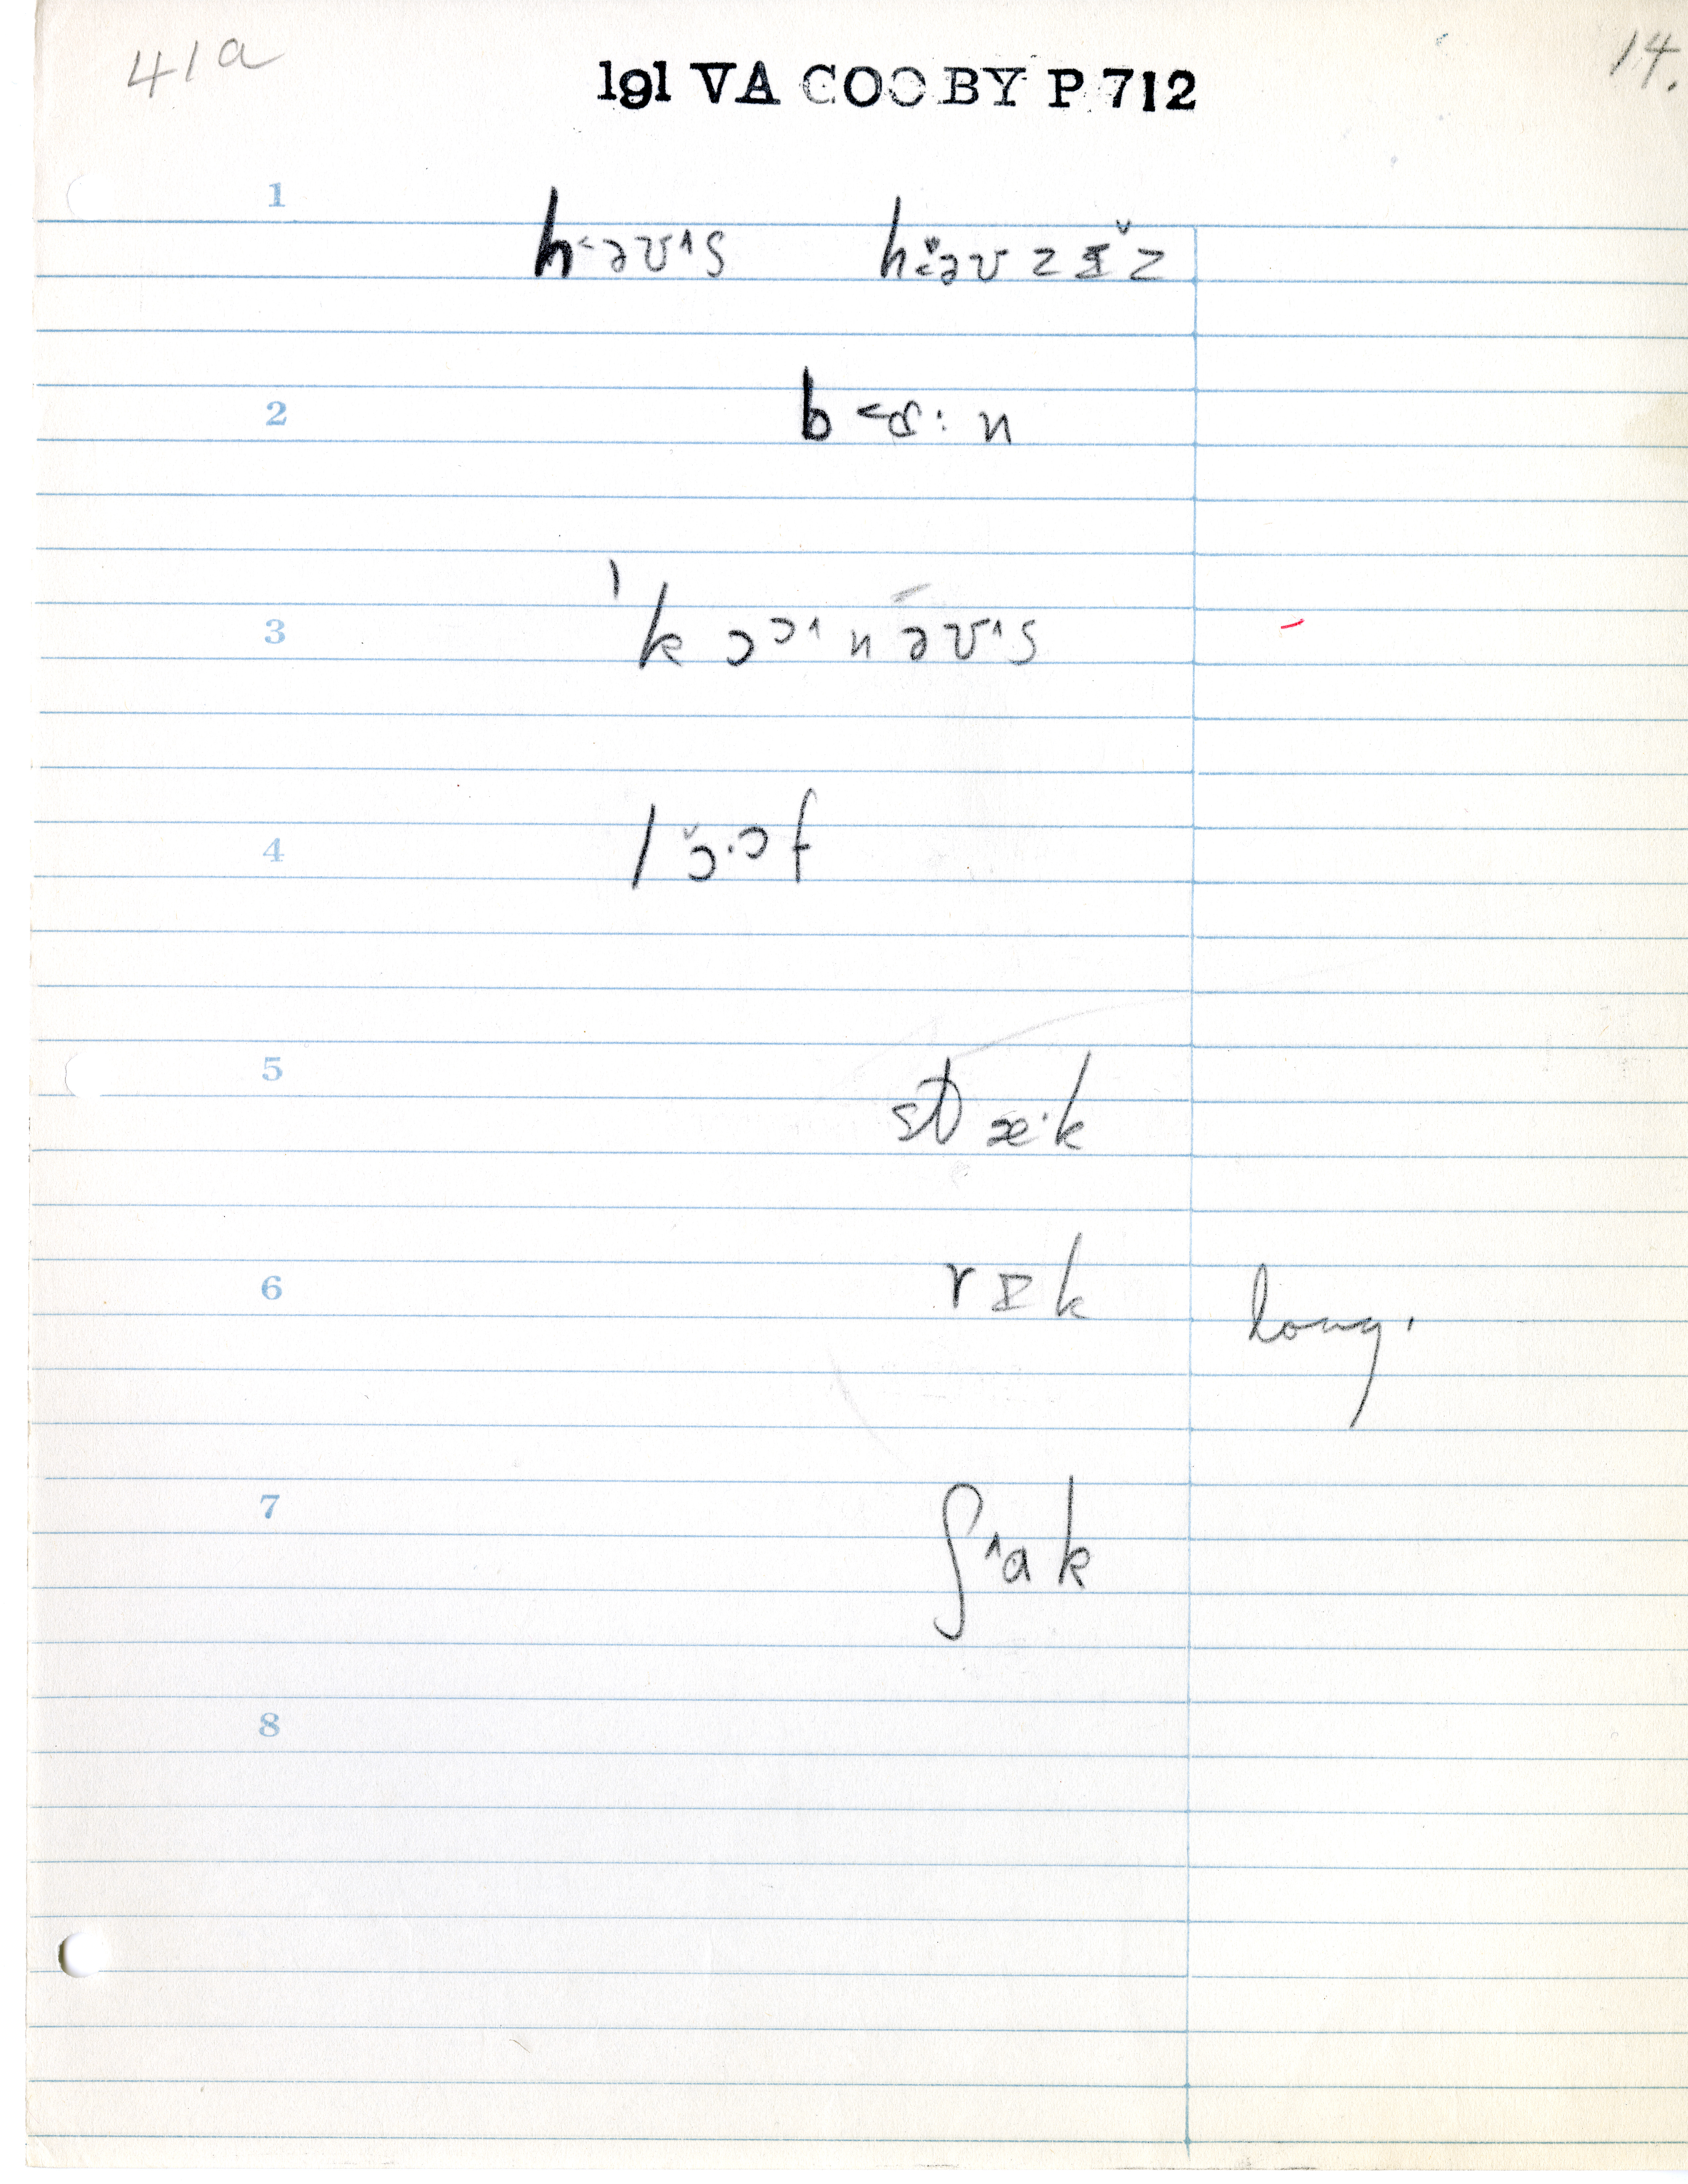 41a
191 VA COO BY P 712
14.
1
h˂əʊ˄s h˂̌əʊ z ɪ̵̌ z
2
b ˂ɑ· n
3
ˈk ɔɔ˄ n əʊ˄s
4
l ɔ̌·ɔ f
5
st æ·k
6
r ɪ k long.
7
ʃ ˄a k
8